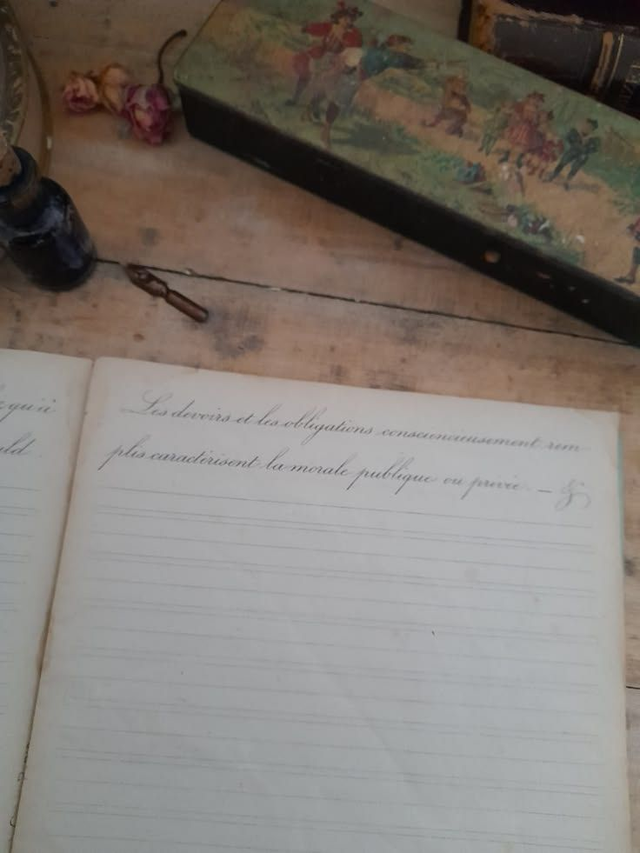 Les devoirs et les obligations consciencieusement rem-
plis caractérisent la morale publique ou privée. —